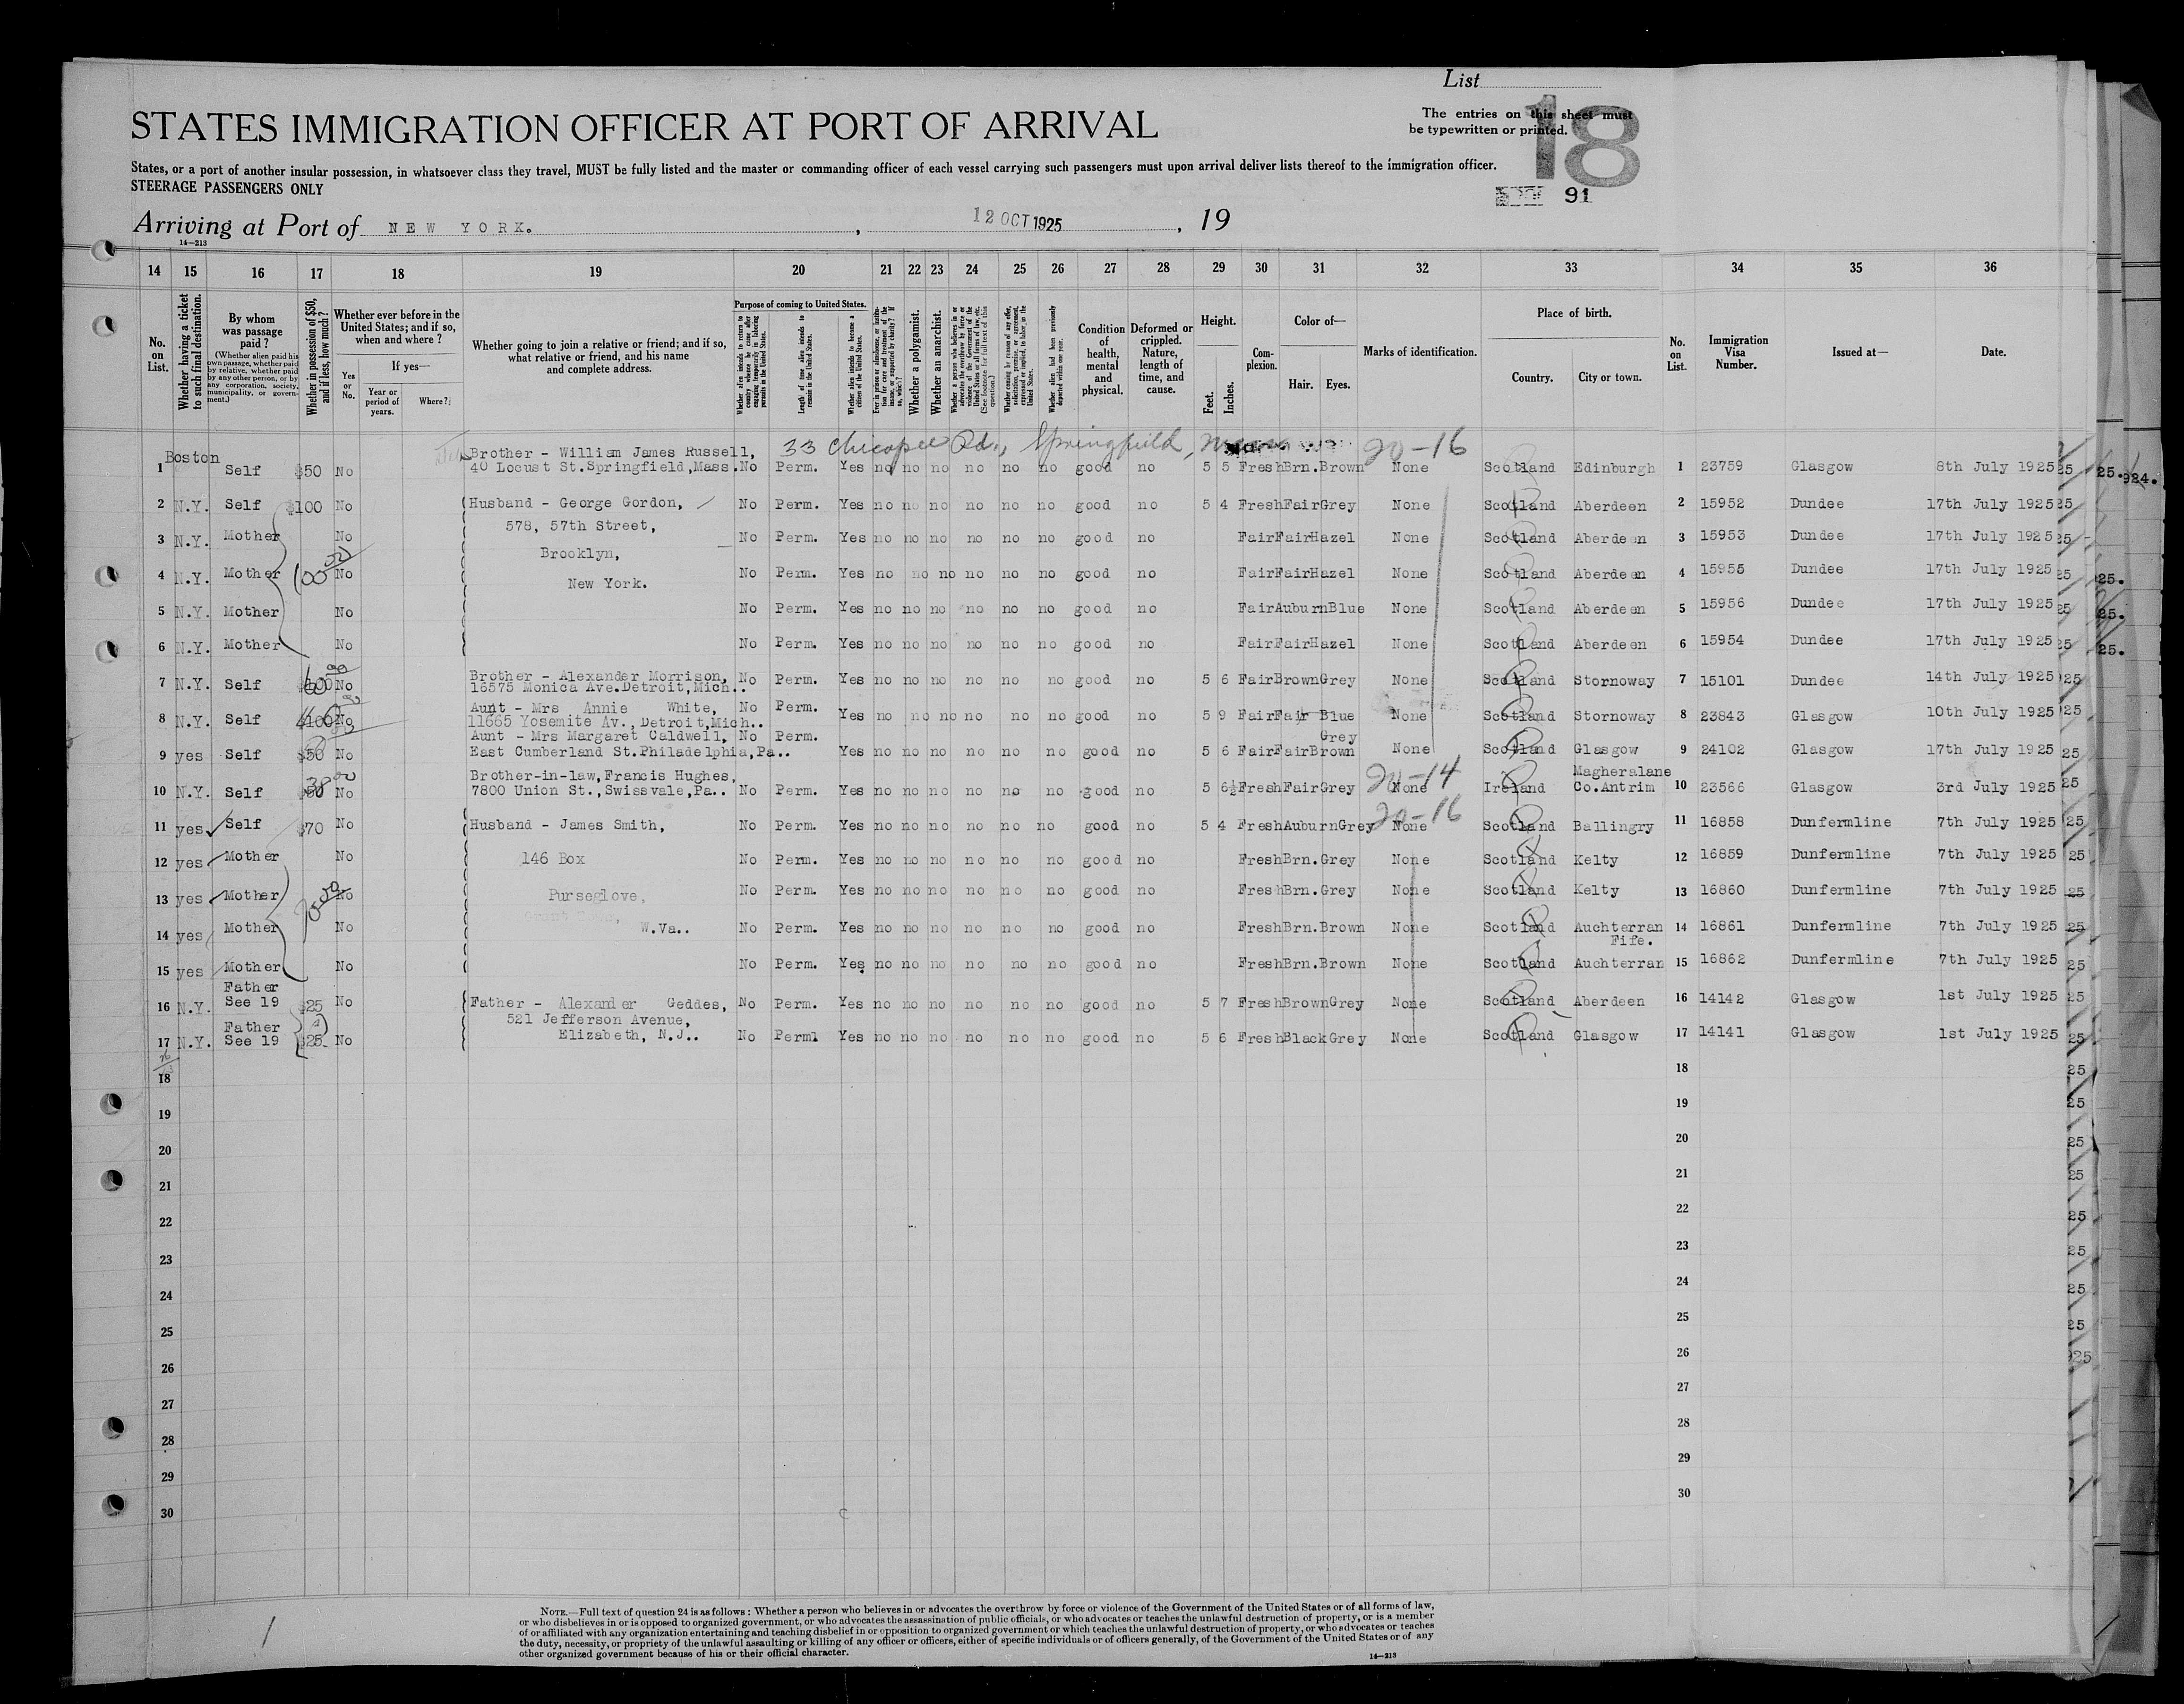 List
18
The entries on this sheet must
be typewritten or printed.
STATES IMMIGRATION OFFICER AT PORT OF ARRIVAL
States, or a port of another insular possession, in whatsoever class they travel, MUST be fully listed and the master or commanding officer of each vessel carrying such passengers must upon arrival deliver lists thereof to the immigration officer.
STEERAGE PASSENGERS ONLY
91
Arriving at Port of NEW YORK. , 12 OCT 1925 , 19
14—213
14 15 16 17 18 19 20 21 22 23 24 25 26 27 28 29 30 31 32 33 34 35 36
No. on List.
Whether having a ticket to such final destination.
By whom was passage paid?
(Whether alien paid his own passage, whether paid by relative, whether paid by any other person, or by any corporation, society, municipality, or government.)
Whether in possession of $50, and if less, how much?
Whether ever before in the United States; and if so, when and where?
If yes—
Yes or No.
Year or period of years.
Where?
Whether going to join a relative or friend; and if so, what relative or friend, and his name and complete address.
Purpose of coming to United States.
Whether alien intends to return to country whence he came after engaging temporarily in laboring pursuits in the United States.
Length of time alien intends to remain in the United States.
Whether alien intends to become a citizen of the United States.
Ever in prison or almshouse, or institution for care and treatment of the insane, or supported by charity? If so, which?
Whether a polygamist.
Whether an anarchist.
Whether a person who believes in or advocates the overthrow by force or violence of the Government of the United States or all forms of law, etc. (See footnote for full text of this question.)
Whether coming by reason of any offer, solicitation, promise, or agreement, expressed or implied, to labor in the United States.
Whether alien had been previously deported within one year.
Condition of health, mental and physical.
Deformed or crippled. Nature, length of time, and cause.
Height.
Feet. Inches.
Complexion.
Color of—
Hair. Eyes.
Marks of identification.
Place of birth.
Country. City or town.
No. on List.
Immigration Visa Number.
Issued at—
Date.
33 Chicopee Rd., Springfield, Mass 20-16
Boston Brother - William James Russell,
1 Self $50 No 40 Locust St.Springfield,Mass. No Perm. Yes no no no no no no good no 5 5 Fresh Brn. Brown None Scotland Edinburgh 1 23759 Glasgow 8th July 1925
2 N.Y. Self $100 No Husband - George Gordon, No Perm. Yes no no no no no no good no 5 4 Fresh Fair Grey None Scotland Aberdeen 2 15952 Dundee 17th July 1925
578, 57th Street,
3 N.Y. Mother No No Perm. Yes no no no no no no good no Fair Fair Hazel None Scotland Aberdeen 3 15953 Dundee 17th July 1925
Brooklyn,
4 N.Y. Mother No No Perm. Yes no no no no no no good no Fair Fair Hazel None Scotland Aberdeen 4 15955 Dundee 17th July 1925
New York.
5 N.Y. Mother No No Perm. Yes no no no no no no good no Fair Auburn Blue None Scotland Aberdeen 5 15956 Dundee 17th July 1925
6 N.Y. Mother No No Perm. Yes no no no no no no good no Fair Fair Hazel None Scotland Aberdeen 6 15954 Dundee 17th July 1925
Brother - Alexander Morrison,
7 N.Y. Self No 16575 Monica Ave.Detroit,Mich.. No Perm. Yes no no no no no no good no 5 6 Fair Brown Grey None Scotland Stornoway 7 15101 Dundee 14th July 1925
Aunt - Mrs Annie White, No Perm.
8 N.Y. Self $100 No 11665 Yosemite Av., Detroit,Mich.. Yes no no no no no no good no 5 9 Fair Fair Blue None Scotland Stornoway 8 23843 Glasgow 10th July 1925
Aunt - Mrs Margaret Caldwell, No Perm. Grey
9 yes Self $50 No East Cumberland St.Philadelphia,Pa.. Yes no no no no no no good no 5 6 Fair Fair Brown None Scotland Glasgow 9 24102 Glasgow 17th July 1925
Brother-in-law,Francis Hughes, 20-14 Magheralane
10 N.Y. Self $50 No 7800 Union St.,Swissvale,Pa.. No Perm. Yes no no no no no no good no 5 6½ Fresh Fair Grey None Ireland Co.Antrim 10 23566 Glasgow 3rd July 1925
20-16
11 yes Self $70 No Husband - James Smith, No Perm. Yes no no no no no no good no 5 4 Fresh Auburn Grey None Scotland Ballingry 11 16858 Dunfermline 7th July 1925
12 yes Mother No 146 Box No Perm. Yes no no no no no no good no Fresh Brn. Grey None Scotland Kelty 12 16859 Dunfermline 7th July 1925
13 yes Mother No Purseglove, No Perm. Yes no no no no no no good no Fresh Brn. Grey None Scotland Kelty 13 16860 Dunfermline 7th July 1925
14 yes Mother No W.Va.. No Perm. Yes no no no no no no good no Fresh Brn. Brown None Scotland Auchterran 14 16861 Dunfermline 7th July 1925
Fife.
15 yes Mother No No Perm. Yes no no no no no no good no Fresh Brn. Brown None Scotland Auchterran 15 16862 Dunfermline 7th July 1925
Father
16 N.Y. See 19 $25 No Father - Alexander Geddes, No Perm. Yes no no no no no no good no 5 7 Fresh Brown Grey None Scotland Aberdeen 16 14142 Glasgow 1st July 1925
Father 521 Jefferson Avenue,
17 N.Y. See 19 $25 No Elizabeth, N.J.. No Perml Yes no no no no no no good no 5 6 Fresh Black Grey None Scotland Glasgow 17 14141 Glasgow 1st July 1925
18 18
19 19
20 20
21 21
22 22
23 23
24 24
25 25
26 26
27 27
28 28
29 29
30 30
NOTE.—Full text of question 24 is as follows: Whether a person who believes in or advocates the overthrow by force or violence of the Government of the United States or of all forms of law,
or who disbelieves in or is opposed to organized government, or who advocates the assassination of public officials, or who advocates or teaches the unlawful destruction of property, or is a member
of or affiliated with any organization entertaining and teaching disbelief in or opposition to organized government or which teaches the unlawful destruction of property, or who advocates or teaches
the duty, necessity, or propriety of the unlawful assaulting or killing of any officer or officers, either of specific individuals or of officers generally, of the Government of the United States or of any
other organized government because of his or their official character.
14—213